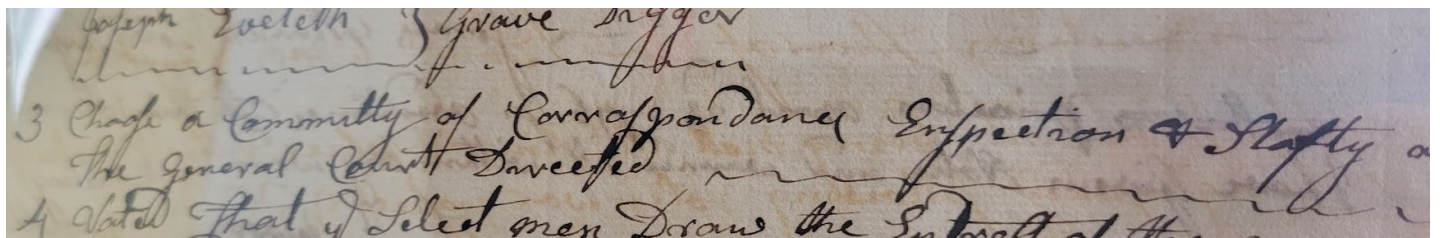 Joseph Eveleth } Grave Digger
3 Chose a Committy of Corraspondancy Enspection & Slafty a
the General Court Directed
4 Voted That ye Select men Draw the Intrest of the